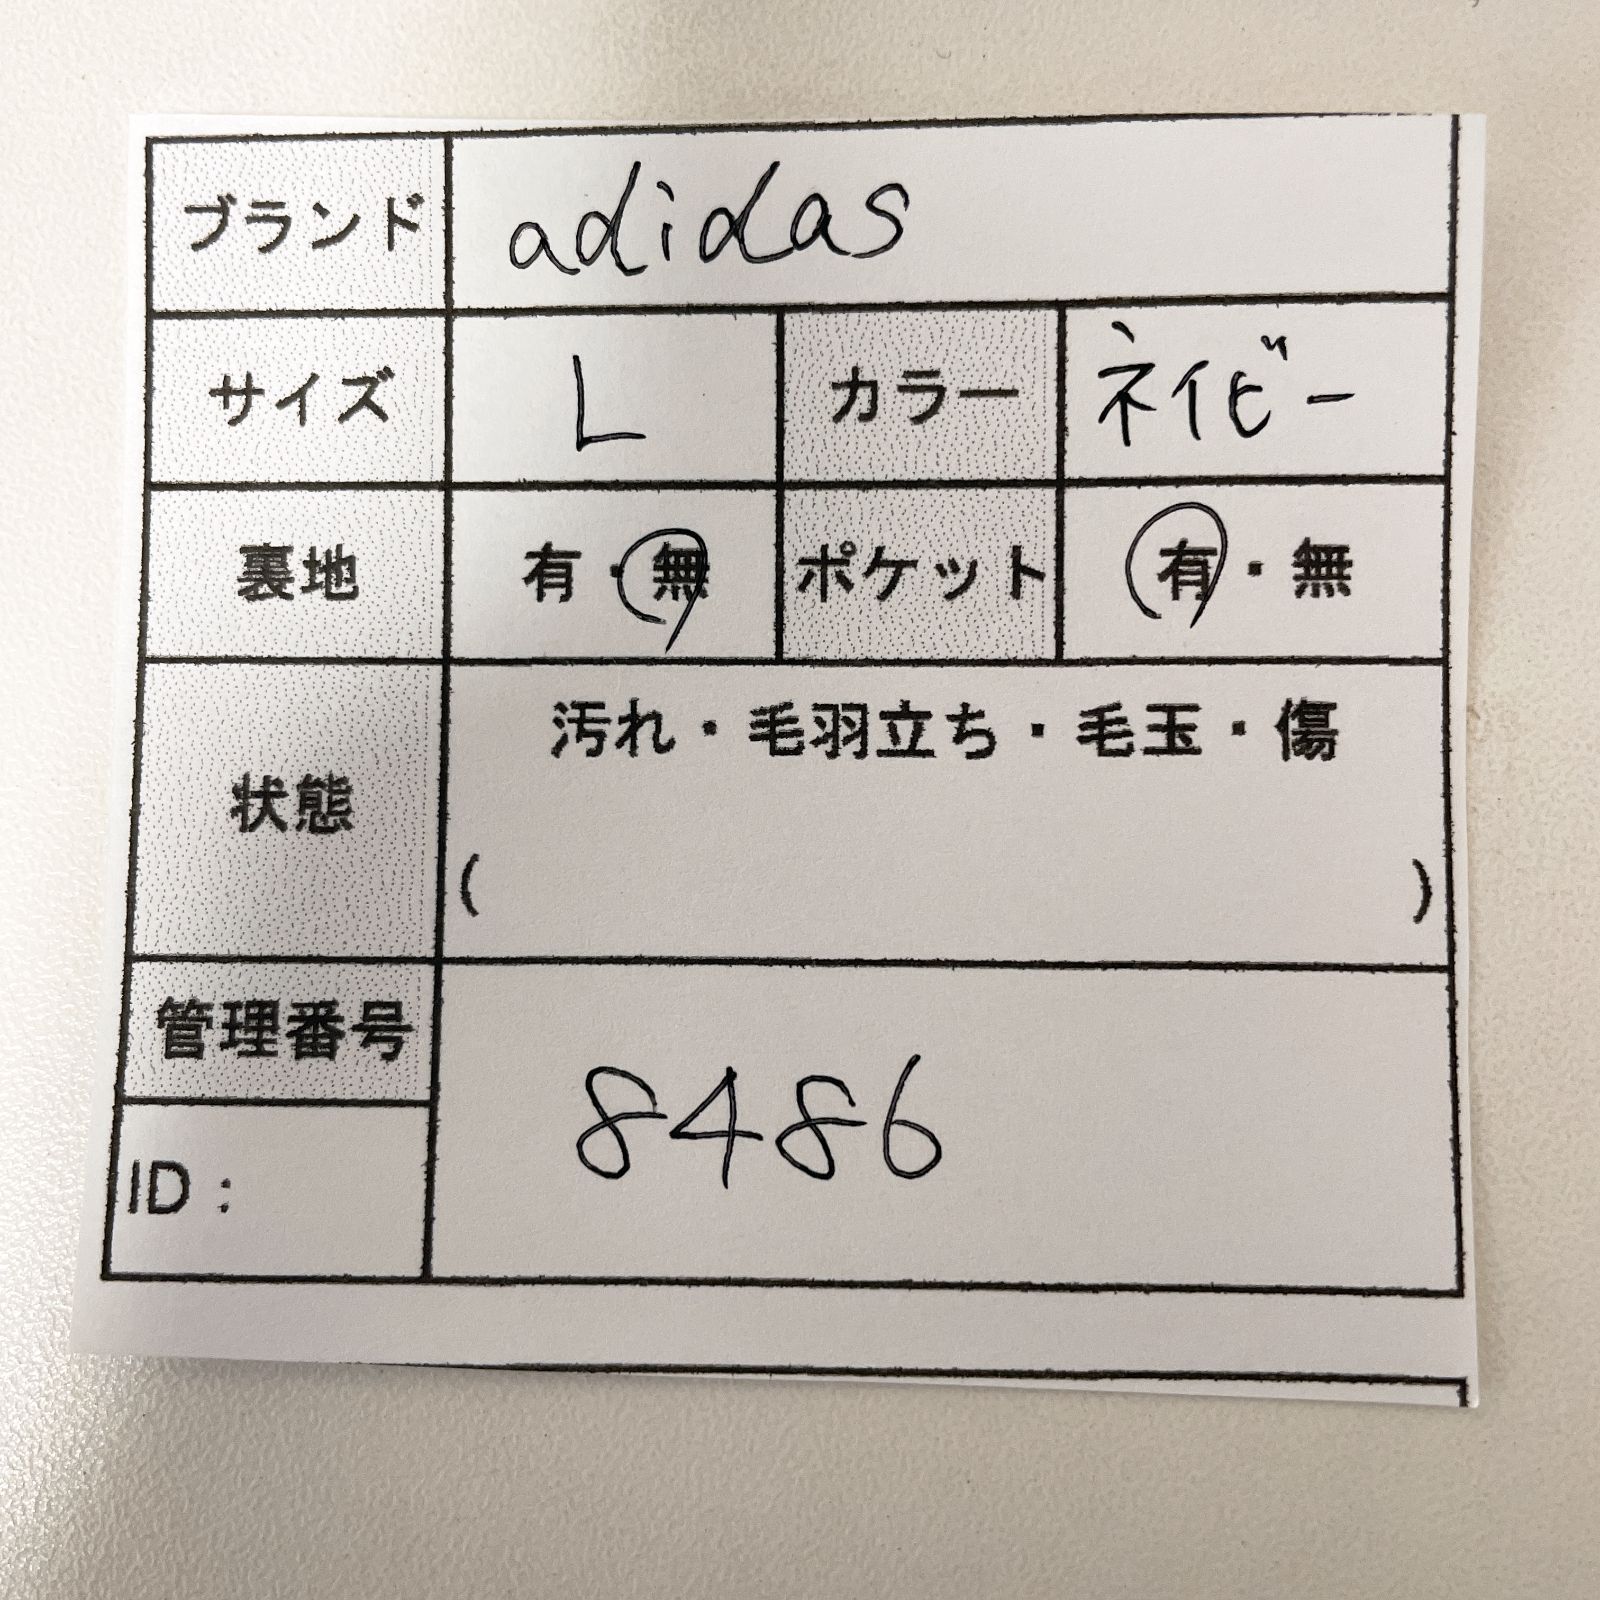 ブランド adidas
サイズ L カラー ネイビー
裏地 有・無 ポケット 有・無
状態 汚れ・毛羽立ち・毛玉・傷
( )
管理番号 8486
ID：